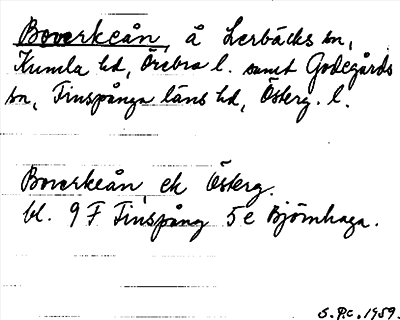 Boverkeån, å Lerbäcks sn,
Kumla hd, Örebro l. samt Godegårds
sn, Finspånga läns hd, Österg. l.
Boverkeån, ek Österg.
bl. 9 F Finspång 5 e Björnhaga.
S.P.c. 1959.